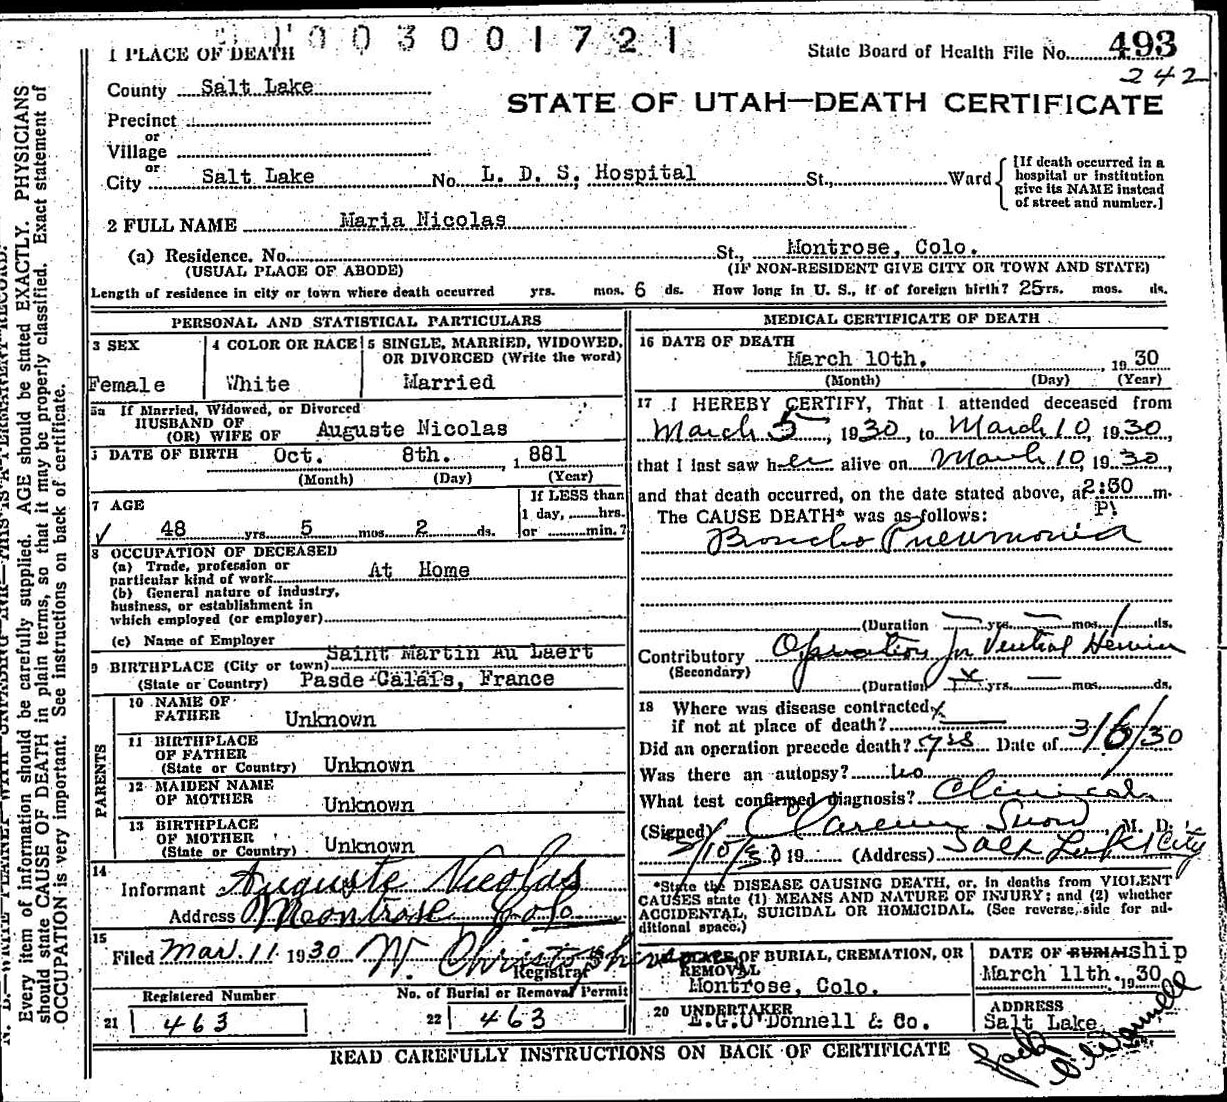 003001721
1 PLACE OF DEATH
State Board of Health File No. 493
242
County Salt Lake
STATE OF UTAH—DEATH CERTIFICATE
Precinct
or
Village
or
City Salt Lake No. L. D. S. Hospital St., Ward
[If death occurred in a
hospital or institution
give its NAME instead
of street and number.]
2 FULL NAME Maria Nicolas
(a) Residence. No. St., Montrose, Colo.
(USUAL PLACE OF ABODE) (IF NON-RESIDENT GIVE CITY OR TOWN AND STATE)
Length of residence in city or town where death occurred yrs. mos. 6 ds. How long in U. S., if of foreign birth? 25 yrs. mos. ds.
PERSONAL AND STATISTICAL PARTICULARS
3 SEX
Female
4 COLOR OR RACE
White
5 SINGLE, MARRIED, WIDOWED,
OR DIVORCED (Write the word)
Married
5a If Married, Widowed, or Divorced
HUSBAND OF
(OR) WIFE OF Auguste Nicolas
DATE OF BIRTH Oct. 8th. , 1881
(Month) (Day) (Year)
7 AGE
48 yrs. 5 mos. 2 ds.
If LESS than
1 day, hrs.
or min.?
8 OCCUPATION OF DECEASED
(a) Trade, profession or
particular kind of work At Home
(b) General nature of industry,
business, or establishment in
which employed (or employer)
(c) Name of Employer
Saint Martin Au Laert
9 BIRTHPLACE (City or town)
(State or Country) Pasde-Calais, France
PARENTS
10 NAME OF
FATHER Unknown
11 BIRTHPLACE
OF FATHER
(State or Country) Unknown
12 MAIDEN NAME
OF MOTHER Unknown
13 BIRTHPLACE
OF MOTHER
(State or Country) Unknown
14
Informant Auguste Nicolas
Address Montrose Colo
15
Filed Mar. 11 1930 W. Christopherson
Registrar
Registered Number
21 463
No. of Burial or Removal Permit
22 463
MEDICAL CERTIFICATE OF DEATH
16 DATE OF DEATH
March 10th. , 1930
(Month) (Day) (Year)
17 I HEREBY CERTIFY, That I attended deceased from
March 5, 1930, to March 10, 1930,
that I last saw her alive on March 10, 1930,
and that death occurred, on the date stated above, at 2:50 P. m.
The CAUSE DEATH* was as follows:
Broncho Pneumonia
(Duration yrs. mos. ds.
Contributory Operation for Ventral Hernia
(Secondary)
(Duration yrs. mos. ds.
18 Where was disease contracted
if not at place of death?
Did an operation precede death? yes Date of 3/6/30
Was there an autopsy? no
What test confirmed diagnosis? Clinical
(Signed) Clarence Snow M. D.
3/10/30 19 (Address) Salt Lake City
*State the DISEASE CAUSING DEATH, or, in deaths from VIOLENT
CAUSES state (1) MEANS AND NATURE OF INJURY; and (2) whether
ACCIDENTAL, SUICIDAL OR HOMICIDAL. (See reverse side for ad-
ditional space.)
PLACE OF BURIAL, CREMATION, OR
REMOVAL
Montrose, Colo.
DATE OF BURIAL ship
March 11th. 1930
20 UNDERTAKER
E.G.O'Donnell & Co.
ADDRESS
Salt Lake
Jack O'Donnell
READ CAREFULLY INSTRUCTIONS ON BACK OF CERTIFICATE
Every item of information should be carefully supplied. AGE should be stated EXACTLY. PHYSICIANS
should state CAUSE OF DEATH in plain terms, so that it may be properly classified. Exact statement of
OCCUPATION is very important. See instructions on back of certificate.